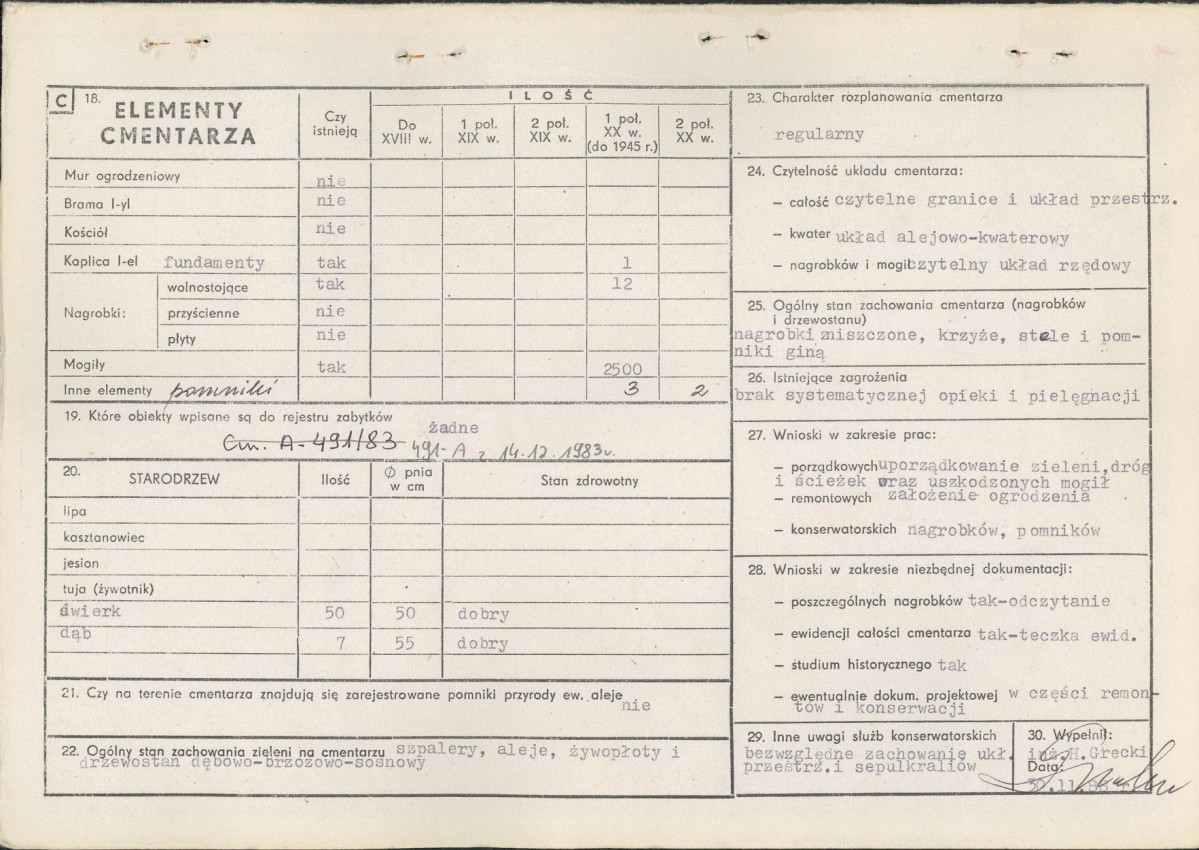 C 18. ELEMENTY CMENTARZA
Czy istnieją
ILOŚĆ
Do XVIII w.
1 poł. XIX w.
2 poł. XIX w.
1 poł. XX w. (do 1945 r.)
2 poł. XX w.
Mur ogrodzeniowy nie
Brama I-yl nie
Kościół nie
Kaplica I-el fundamenty tak 1
Nagrobki:
wolnostojące tak 12
przyścienne nie
płyty nie
Mogiły tak 2500
Inne elementy pomniki 3 2
19. Które obiekty wpisane są do rejestru zabytków
żadne
Cm. A-491/83 491-A z 14.12.1983r.
20. STARODRZEW Ilość Ø pnia w cm Stan zdrowotny
lipa
kasztanowiec
jesion
tuja (żywotnik)
świerk 50 50 dobry
dąb 7 55 dobry
21. Czy na terenie cmentarza znajdują się zarejestrowane pomniki przyrody ew. aleje
nie
22. Ogólny stan zachowania zieleni na cmentarzu szpalery, aleje, żywopłoty i
drzewostan dębowo-brzozowo-sosnowy
23. Charakter rozplanowania cmentarza
regularny
24. Czytelność układu cmentarza:
– całość czytelne granice i układ przestrz.
– kwater układ alejowo-kwaterowy
– nagrobków i mogił czytelny układ rzędowy
25. Ogólny stan zachowania cmentarza (nagrobków
i drzewostanu)
nagrobki zniszczone, krzyże, stele i pom-
niki giną
26. Istniejące zagrożenia
brak systematycznej opieki i pielęgnacji
27. Wnioski w zakresie prac:
– porządkowych uporządkowanie zieleni,dróg
i ścieżek oraz uszkodzonych mogił
– remontowych założenie ogrodzenia
– konserwatorskich nagrobków, pomników
28. Wnioski w zakresie niezbędnej dokumentacji:
– poszczególnych nagrobków tak-odczytanie
– ewidencji całości cmentarza tak-teczka ewid.
– studium historycznego tak
– ewentualnie dokum. projektowej w części remon-
tów i konserwacji
29. Inne uwagi służb konserwatorskich
bezwzględne zachowanie ukł.
przestrz.i sepulkraliów
30. Wypełnił:
inż.H.Grecki
Data